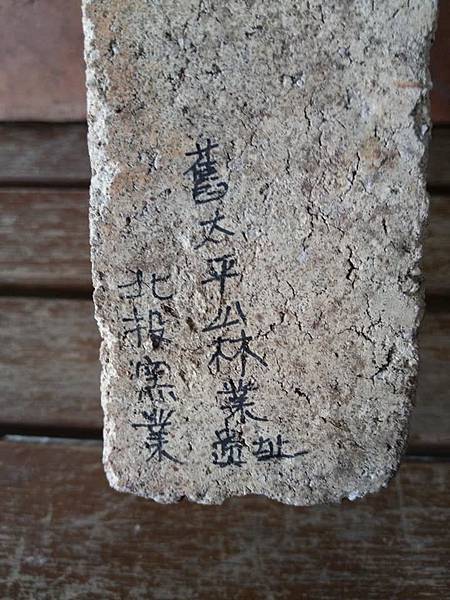 舊太平山林業遺址
北投窯業